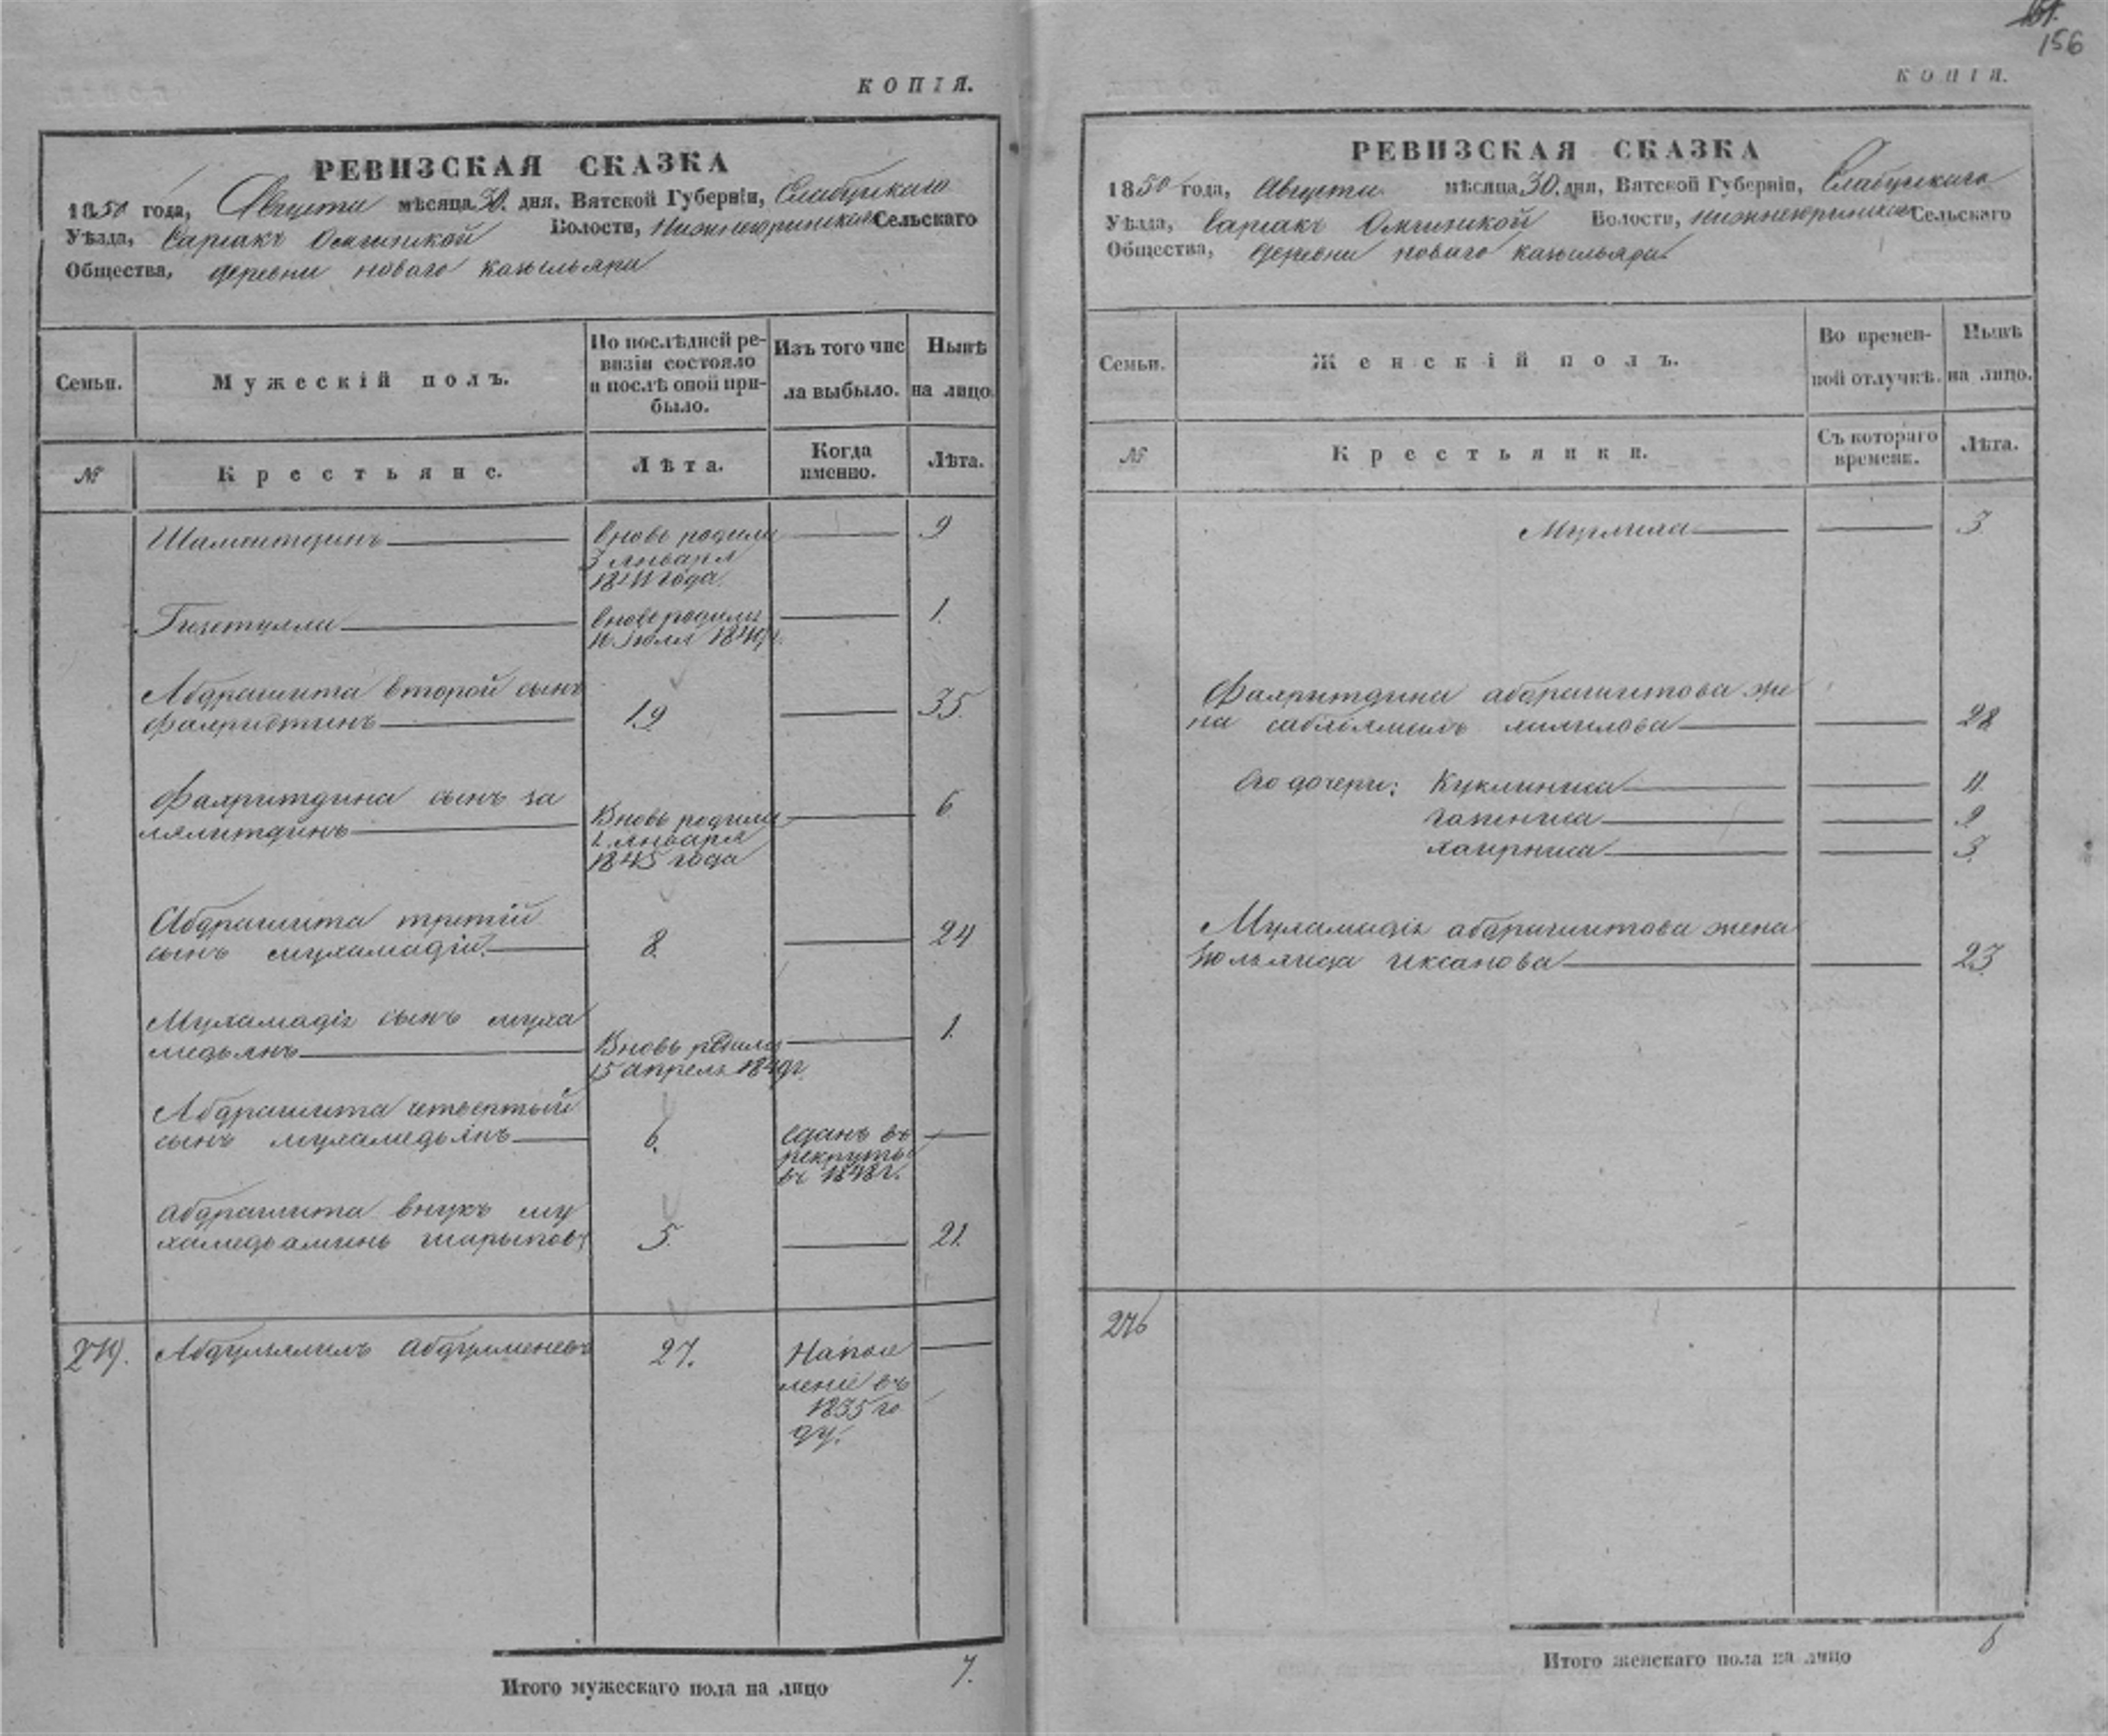 КОПІЯ.
РЕВИЗСКАЯ СКАЗКА
1850 года, Августа мѣсяца 30. дня, Вятской Губерніи, Елабужскаго
Уѣзда, Сарсакъ Омгинской Волости, Нижнеюринскаго Сельскаго
Общества, деревни новаго казильяра
Семьи.
Мужескій полъ.
По послѣдней ре-
визіи состояло
и послѣ оной при-
было.
Изъ того чис
ла выбыло.
Нынѣ
на лицо.
№
Крестьяне.
Лѣта.
Когда
именно.
Лѣта.
Шаментдинъ
вновь родилс
3 января
1841 года
9
вновь родилс
1.
Абдрашита второй сынъ
фахритдинъ
19
35.
Фахритдина сынъ за
лялитдинъ
Вновь родилс
1 января
1845 года
6
Абдрашита третій
сынъ мухамадій.
8.
24
Мухамадія сынъ муха
медьянъ
Вновь родилс
15 апреля 1849 г.
1.
Абдрашита четвертый
сынъ мухамедьянъ
6.
сданъ въ
рекруты
въ 1848 г.
абдрашита внукъ му
хамедьаминь шарыповъ
5.
21.
27.
Напосе
леніе въ
1835 го
ду.
Итого мужескаго пола на лицо
7.
156
КОПІЯ.
РЕВИЗСКАЯ СКАЗКА
1850 года, Августа мѣсяца 30. дня, Вятской Губерніи, Елабужскаго
Уѣзда, Сарсакъ Омгинской Волости, нижнеюринскаго Сельскаго
Общества, деревни новаго казильяра
Семьи.
Женскій полъ.
Во времен-
ной отлучкѣ.
Нынѣ
на лицо.
№
Крестьянки.
Съ котораго
времени.
Лѣта.
3
Фахритдина абдрашитова же
на
28
Его дочери:
11.
9
хаирниса
3.
Мухамадія абдрашитова жена
иксанова
23.
Итого женскаго пола на лицо
6